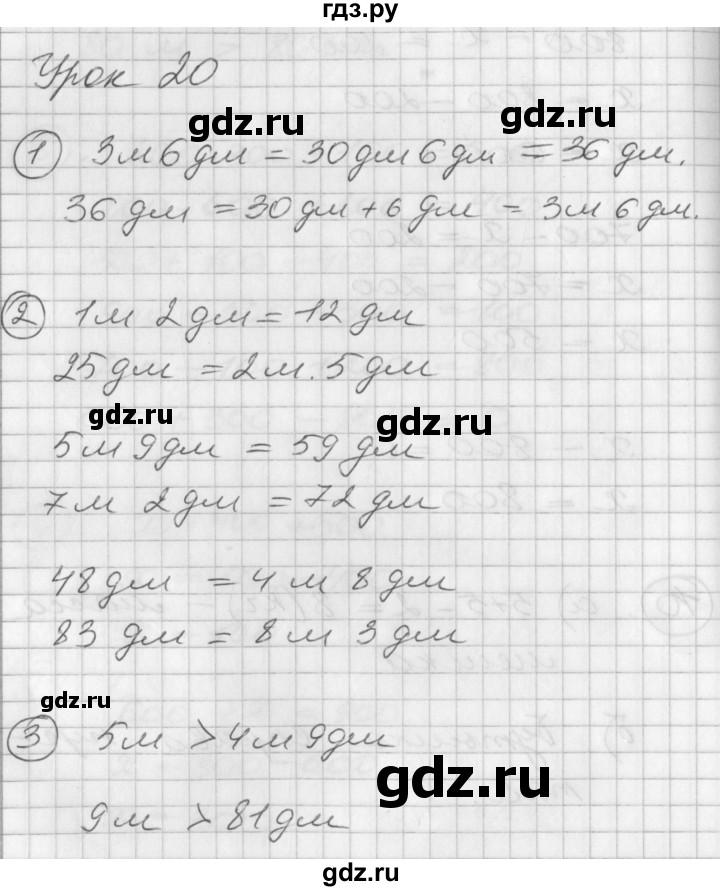 гдз.ру
Урок 20
gdz.ru
gdz.ru
1 3м 6 дм = 30 дм 6 дм = 36 дм.
36 дм = 30 дм + 6 дм = 3м 6 дм.
2 1м 2 дм = 12 дм
25 дм = 2 м. 5 дм
gdz.ru
gdz.ru
5 м 9 дм = 59 дм
7м 2 дм = 72 дм
48 дм = 4 м 8 дм
83 дм = 8 м 3 дм
gdz.ru
3 5м > 4м 9дм
gdz.ru
9м > 81 дм
gdz.ru